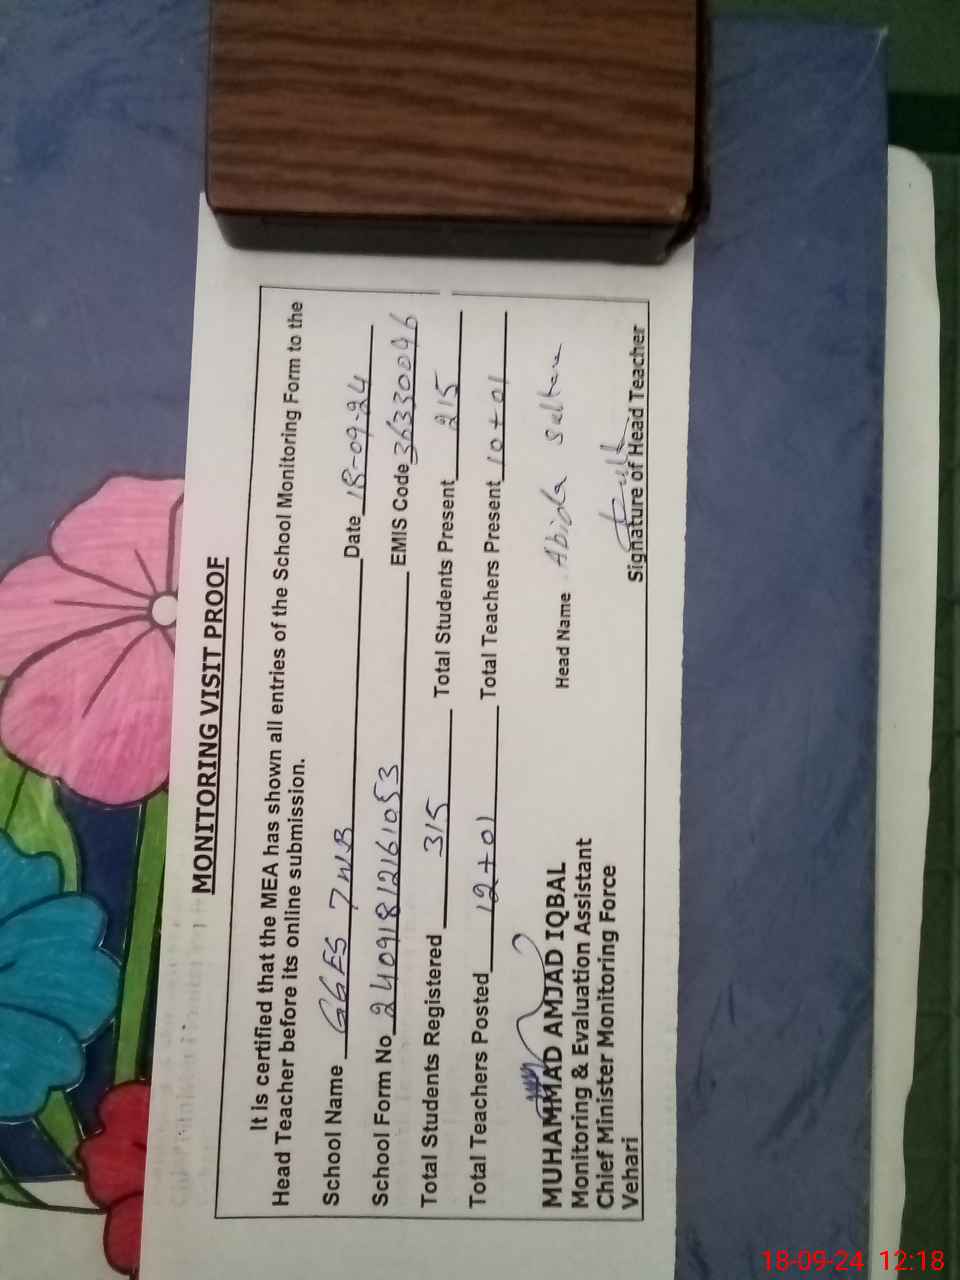 MONITORING VISIT PROOF
It is certified that the MEA has shown all entries of the School Monitoring Form to the
Head Teacher before its online submission.
School Name GGES 7 WB Date 18-09-24
School Form No 24091812161053 EMIS Code 36330096
Total Students Registered 315 Total Students Present 215
Total Teachers Posted 12+01 Total Teachers Present 10+01
Head Name Abida Sultana
MUHAMMAD AMJAD IQBAL
Monitoring & Evaluation Assistant
Chief Minister Monitoring Force
Vehari
Signature of Head Teacher
18-09-24 12:18